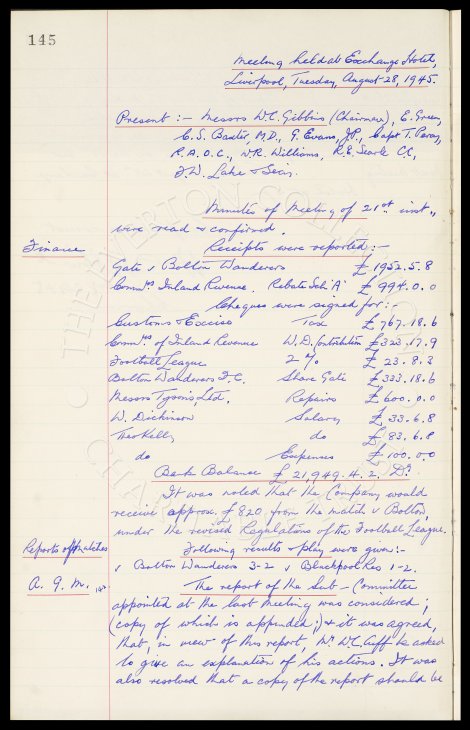 145
Meeting held at Exchange Hotel,
Liverpool, Tuesday, August 28, 1945.
Present :- Messrs W.C. Gibbins (Chairman), E. Green,
C.S. Baxter, M.D., G. Evans, J.P., Capt T. Percy,
R.A.O.C., W.R. Williams, R.E. Searle C.C.,
J.W. Lake & Secy.
Minutes of Meeting of 21st inst.,
were read & confirmed.
Finance Receipts were reported :-
Gate v Bolton Wanderers £1952.5.8
Commrs Inland Revenue. Rebate Sch 'A' £994.0.0
Cheques were signed for :-
Customs & Excise Tax £767.18.6
Commrs of Inland Revenue W.D. Contribution £323.17.9
Football League 2% £23.8.3
Bolton Wanderers F.C. Share Gate £333.18.6
Messrs Tysons Ltd. Repairs £600.0.0
W. Dickinson Salary £33.6.8
Theo Kelly do £83.6.8
do Expenses £100.0.0
Bank Balance £21,949.4.2. Dr.
It was noted that the Company would
receive approx. £820 from the match v Bolton,
under the revised Regulations of the Football League.
Reports of Matches Following results & play were given :-
v Bolton Wanderers 3-2 v Blackpool Res 1-2.
A.G.M. The report of the Sub-Committee
appointed at the last Meeting was considered;
(copy of which is appended;) & it was agreed,
that, in view of this report, Mr W.C. Cuff be asked
to give an explanation of his actions. It was
also resolved that a copy of the report should be
THE EVERTON COLLECTION
CHARITABLE